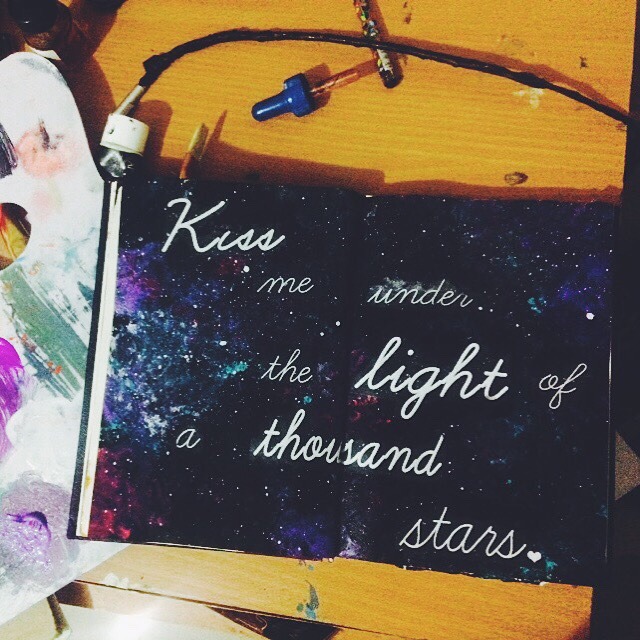 Kiss
me under..
the light of
a thousand
stars.